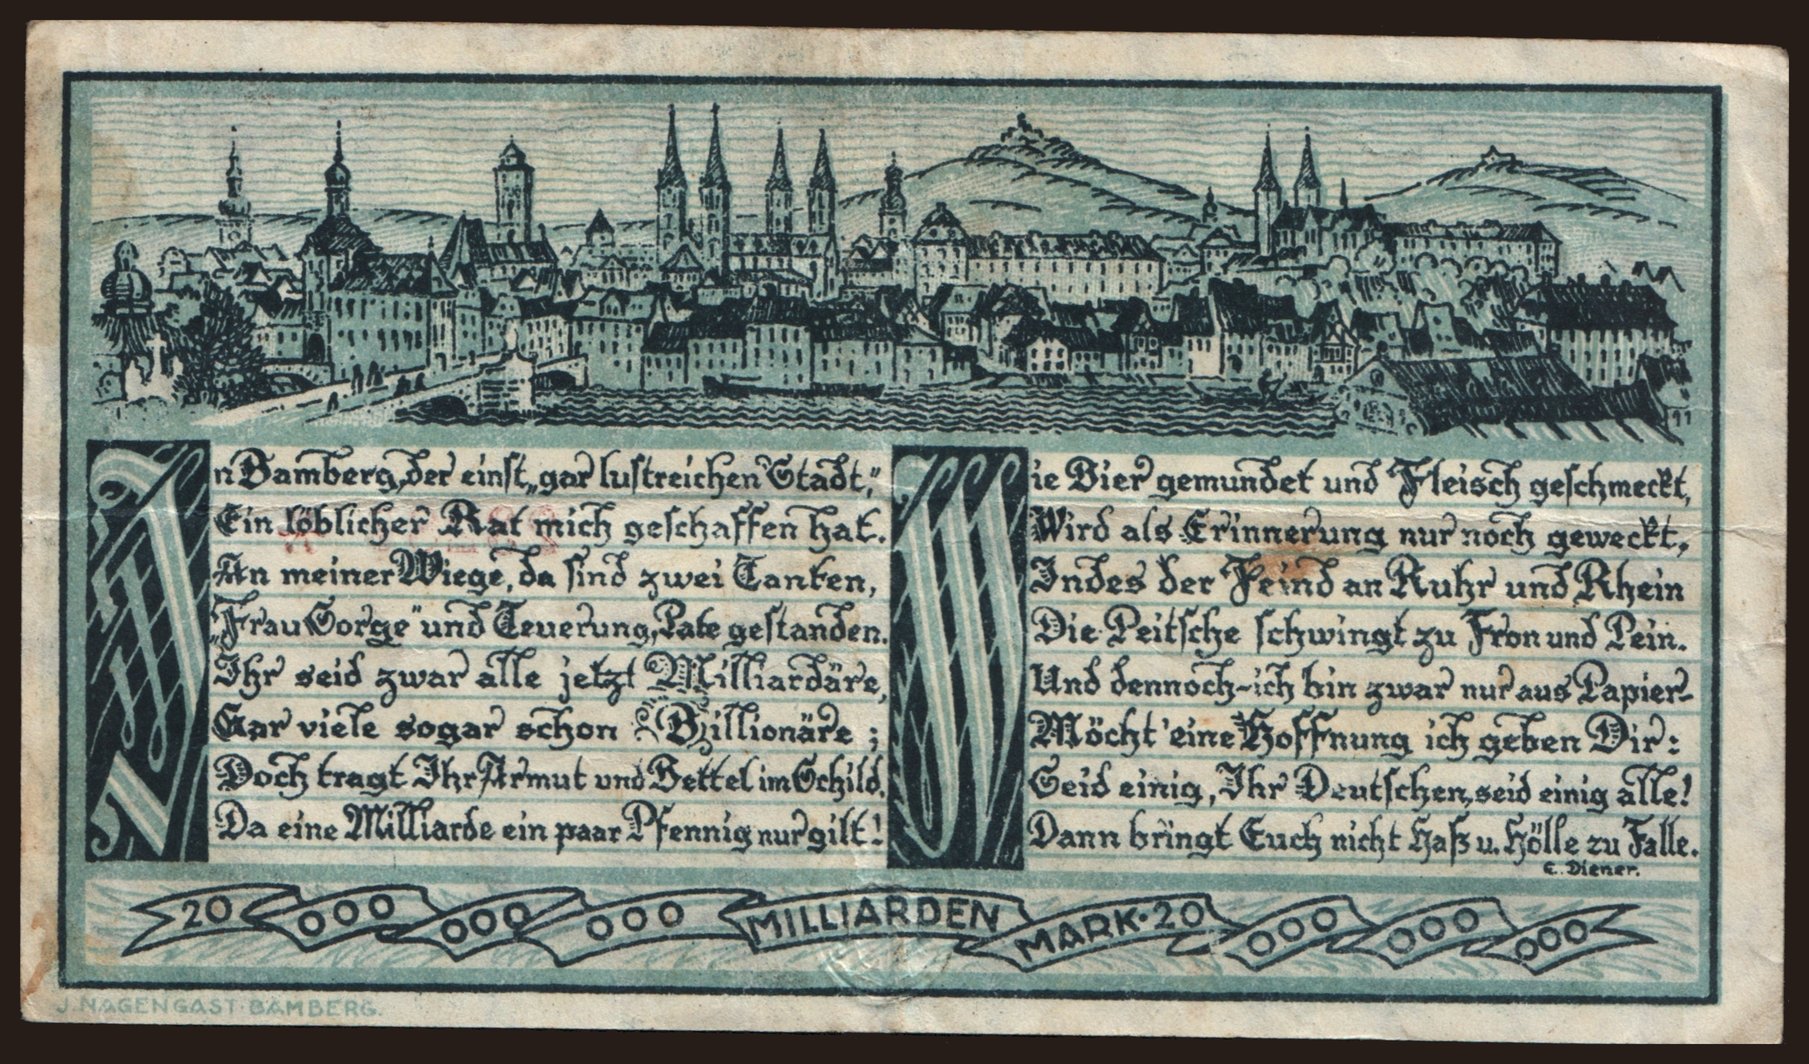 In Bamberg, der einst „gar lustreichen Stadt,“
Ein löblicher Rat mich geschaffen hat.
An meiner Wiege, da sind zwei Tanten,
„Frau Sorge“ und Teuerung, Pate gestanden.
Ihr seid zwar alle jetzt Milliardäre,
Gar viele sogar schon Billionäre;
Doch tragt Ihr Armut und Bettel im Schild,
Da eine Milliarde ein paar Pfennig nur gilt!
Wie Bier gemundet und Fleisch geschmeckt,
Wird als Erinnerung nur noch geweckt,
Indes der Feind an Ruhr und Rhein
Die Peitsche schwingt zu Fron und Pein.
Und dennoch-ich bin zwar nur aus Papier-
Möcht' eine Hoffnung ich geben Dir:
Seid einig, Ihr Deutschen, seid einig alle!
Dann bringt Euch nicht Haß u. Hölle zu Falle.
E. Diener.
20 000 000 000 MILLIARDEN MARK·20 000 000 000
J. NAGENGAST·BAMBERG.